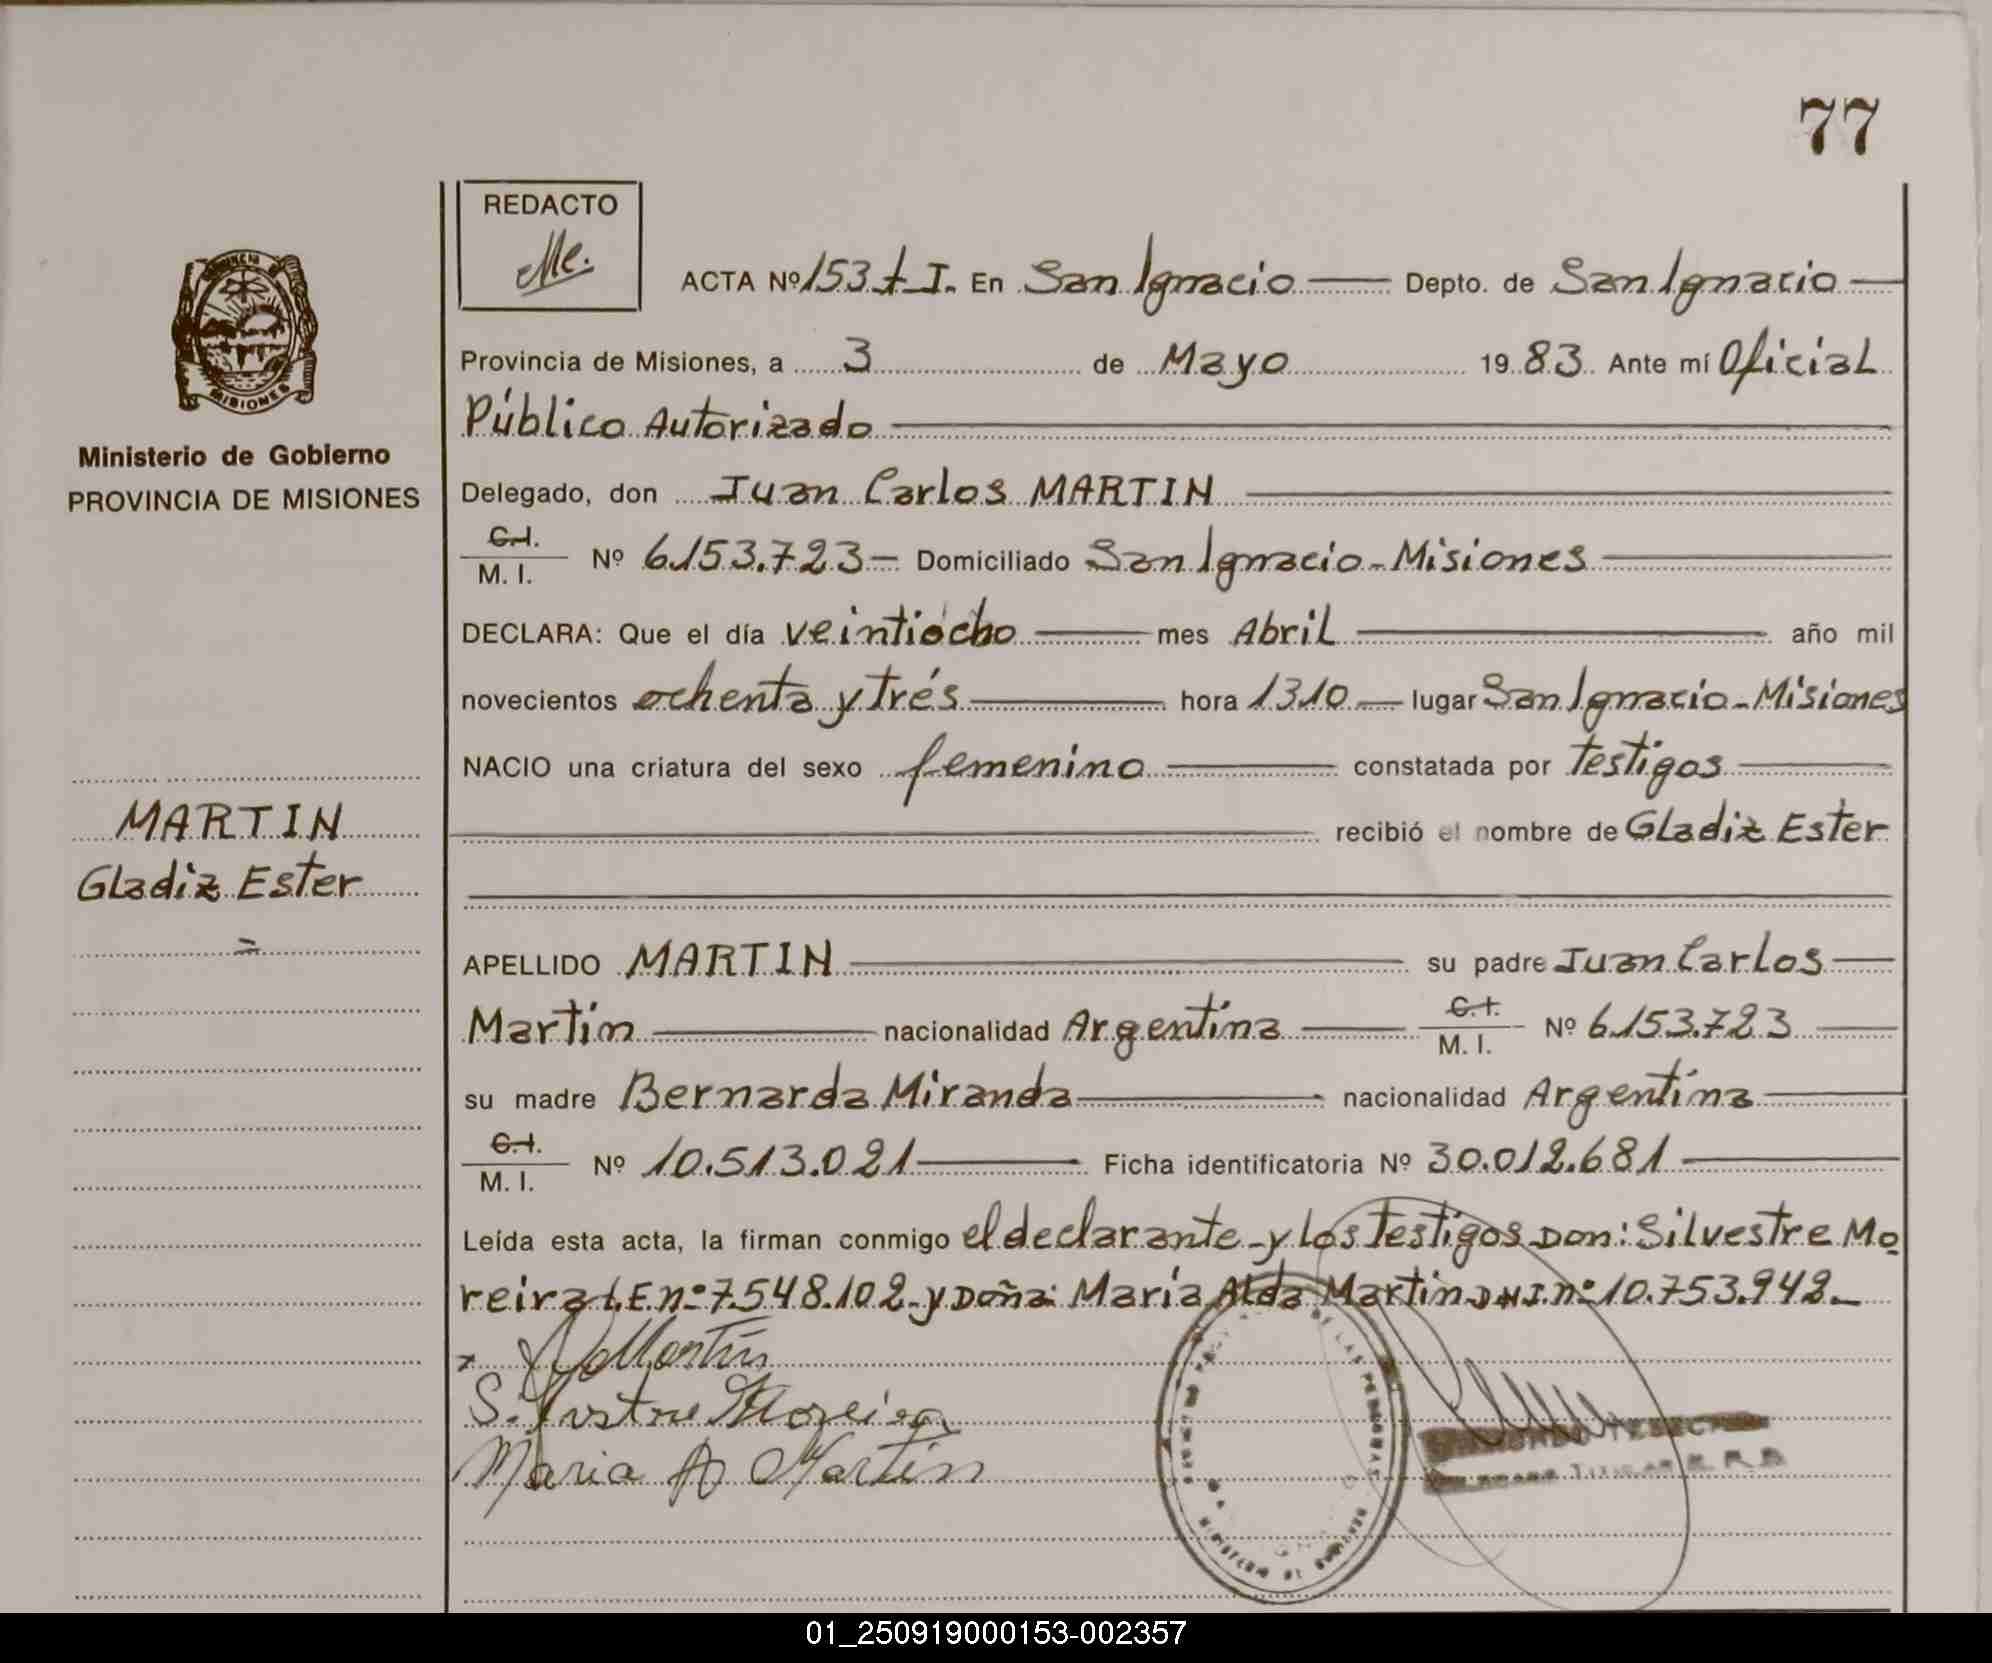 77
REDACTO
Me.
ACTA Nº 153 t I. En San Ignacio Depto. de San Ignacio
Provincia de Misiones, a 3 de Mayo 1983 Ante mí Oficial
Público Autorizado
Delegado, don Juan Carlos MARTIN
C.I.
M. I. Nº 6.153.723 Domiciliado San Ignacio - Misiones
DECLARA: Que el día veintiocho mes Abril año mil
novecientos ochenta y trés hora 13.10 lugar San Ignacio - Misiones
NACIO una criatura del sexo femenino constatada por testigos
recibió el nombre de Gladiz Ester
APELLIDO MARTIN su padre Juan Carlos
Martin nacionalidad Argentina C.I.
M. I. Nº 6.153.723
su madre Bernarda Miranda nacionalidad Argentina
C.I.
M. I. Nº 10.513.021 Ficha identificatoria Nº 30.012.681
Leída esta acta, la firman conmigo el declarante y los testigos Don: Silvestre Mo
reira L.E. nº 7.548.102 y Doña: María Alda Martin D.N.I. nº 10.753.942
Martín
S. Moreira
Maria A Martin
PROVINCIA DE
MISIONES
Ministerio de Gobierno
PROVINCIA DE MISIONES
MARTIN
Gladiz Ester
DE LAS PERSONAS
MINISTERIO DE GOBIERNO
01_250919000153-002357